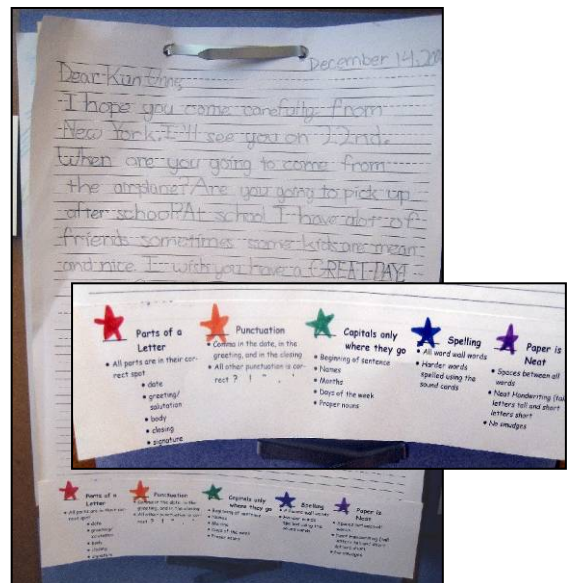 December 14, 20
Dear Kun Unne,
I hope you come carefully from
New York. I'll see you on 22nd.
When are you going to come from
the airplane? Are you going to pick up
after school? At school I have alot of
friends sometimes some kids are mean
and nice I wish you have a GREAT DAY!
Parts of a
Letter
• All parts are in their cor-
rect spot
• date
• greeting/
salutation
• body
• closing
• signature
Punctuation
• Comma in the date, in the
greeting, and in the closing
• All other punctuation is cor-
rect ? ! " . ,
Capitals only
where they go
• Beginning of sentence
• Names
• Months
• Days of the week
• Proper nouns
Spelling
• All word wall words
• Harder words
spelled using the
sound cards
Paper is
Neat
• Spaces between all
words
• Neat Handwriting (tall
letters tall and short
letters short
• No smudges
Parts of a
Letter
• All parts are in their cor-
rect spot
• date
• greeting/
salutation
• body
• closing
• signature
Punctuation
• Comma in the date, in the
greeting, and in the closing
• All other punctuation is cor-
rect ? !
Capitals only
where they go
• Beginning of sentence
• Names
• Months
• Days of the week
• Proper nouns
Spelling
• All word wall words
• Harder words
spelled using the
sound cards
Paper is
Neat
• Spaces between all
words
• Neat Handwriting (tall
letters tall and short
letters short
• No smudges